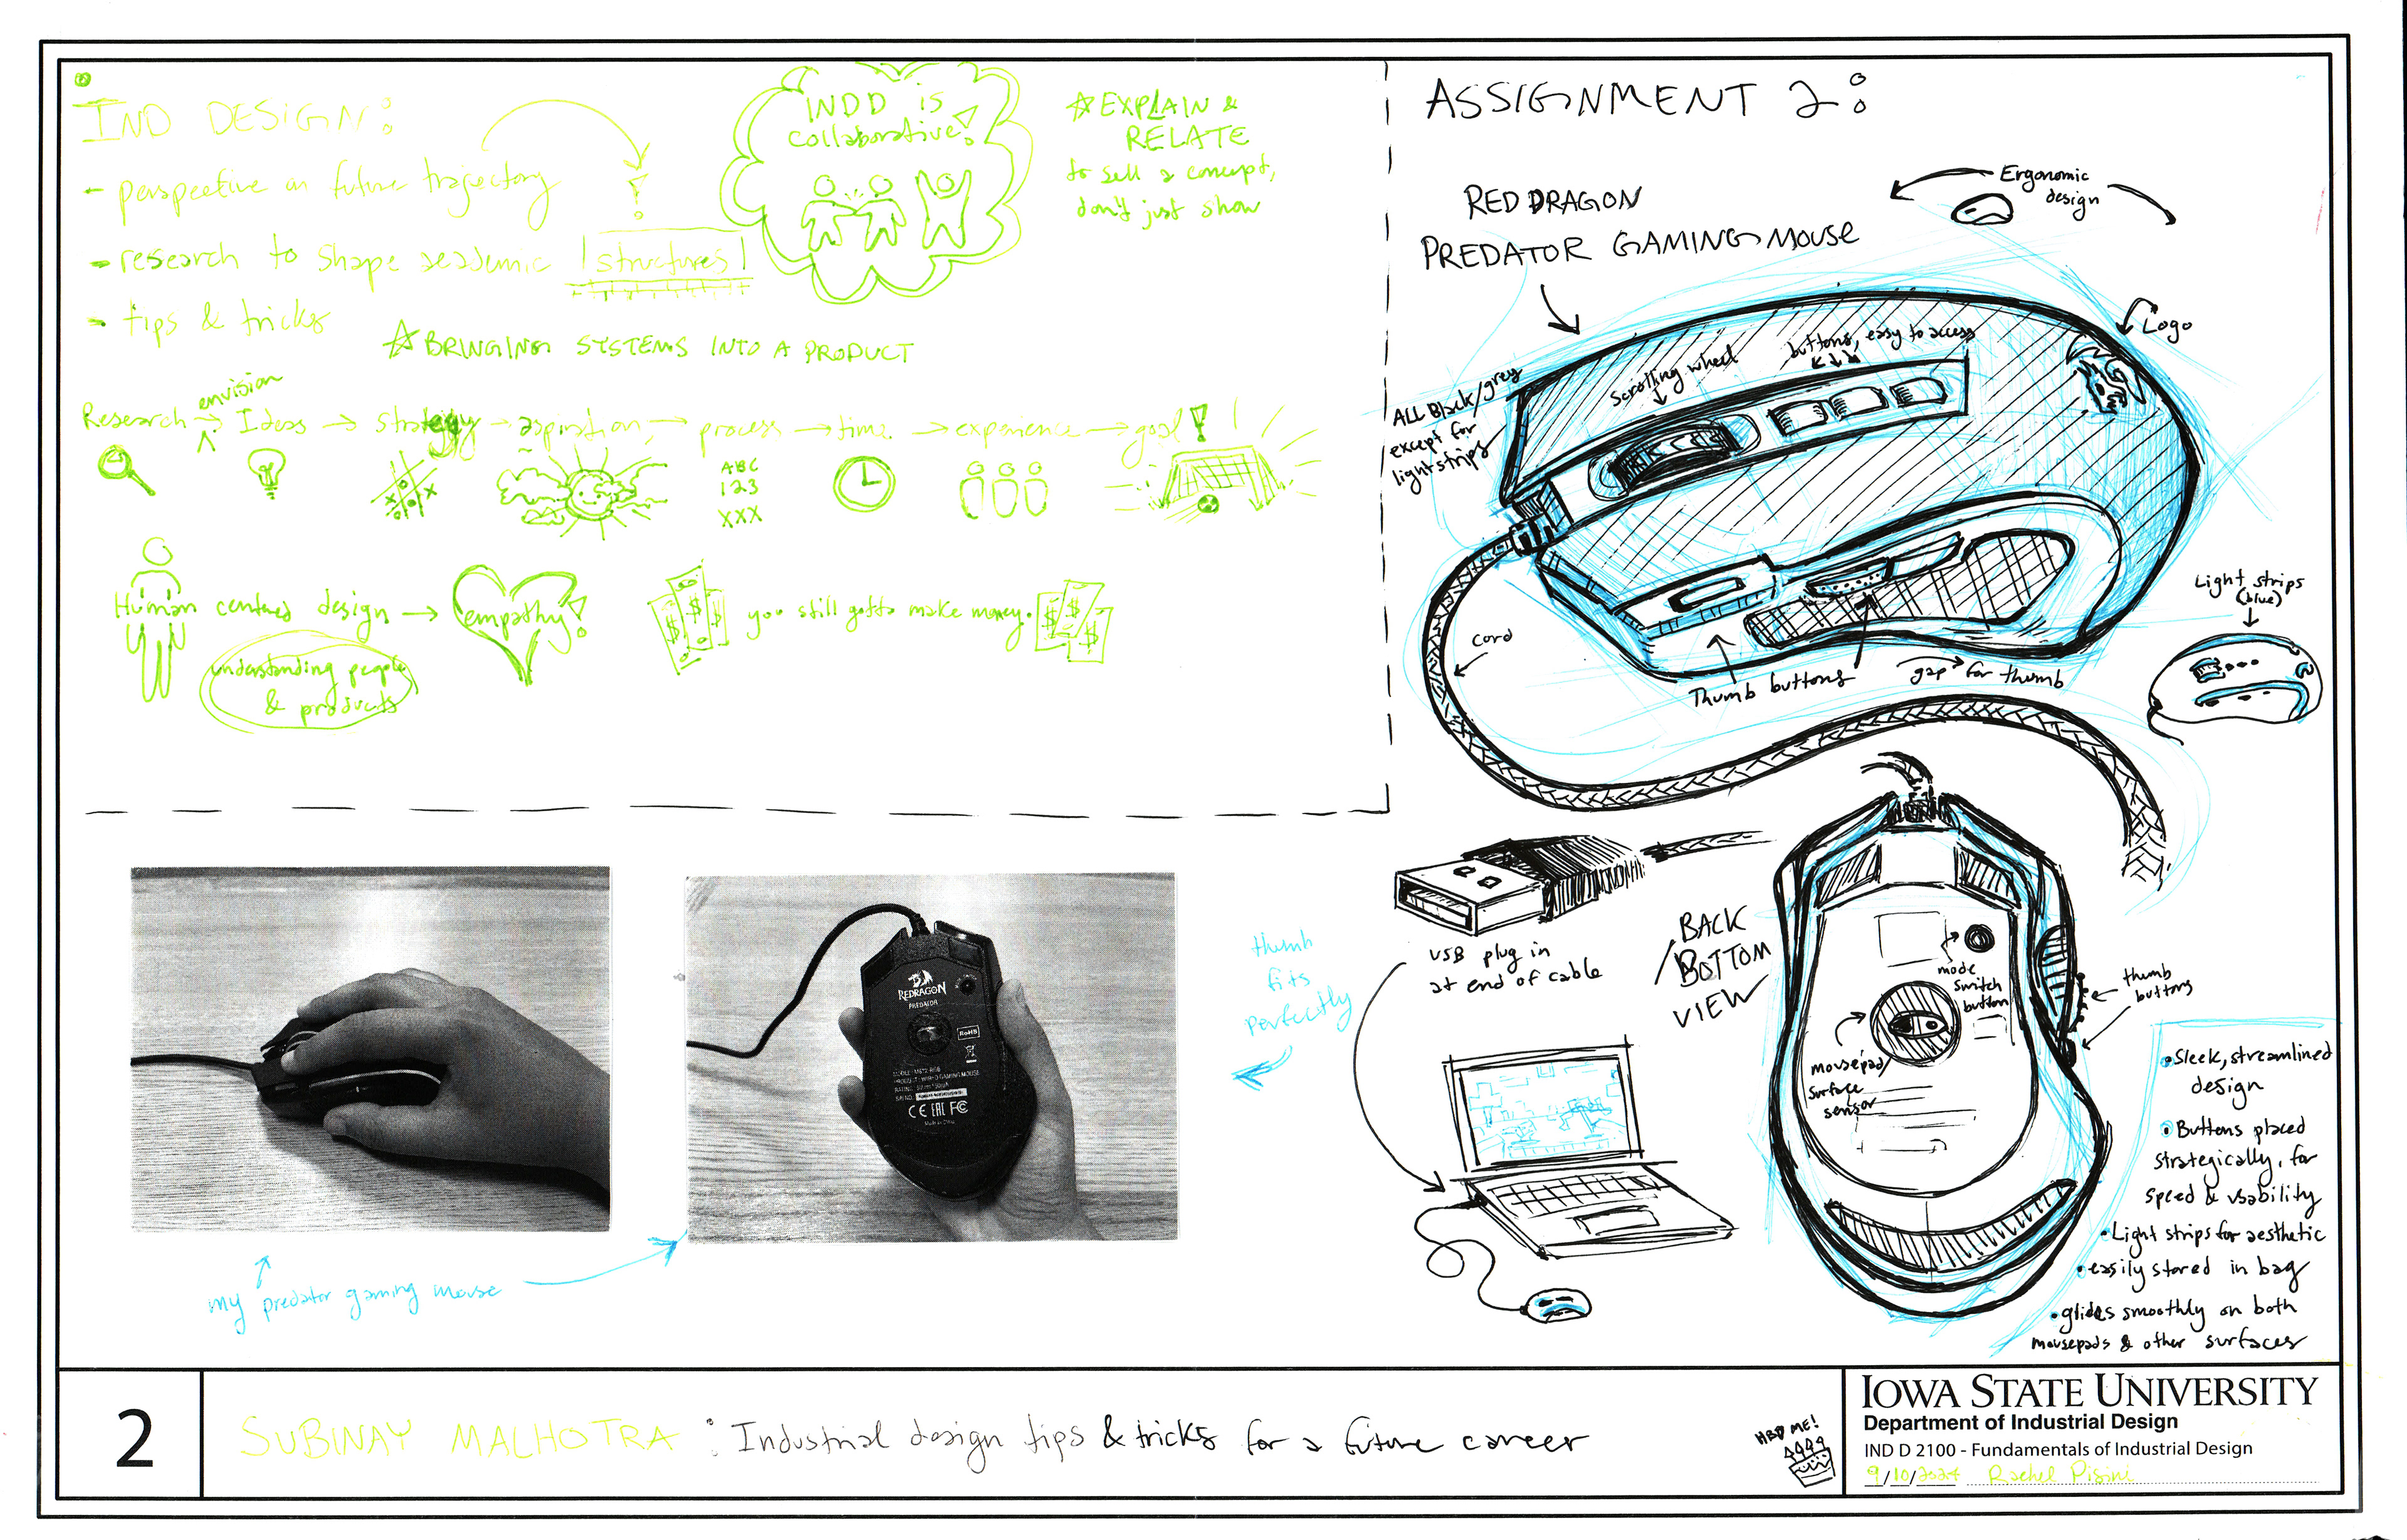 IND DESIGN:
- perspective on future trajectory
- research to shape academic structures
- tips & tricks
!
INDD is
collaborative!
☆ EXPLAIN &
RELATE
to sell a concept,
don't just show
☆ BRINGING SYSTEMS INTO A PRODUCT
envision
Research → Ideas → strategy → aspiration → process → time → experience → goal!
ABC
123
XXX
Human centered design → empathy!
understanding people
& products
$ $ $ you still gotta make money. $ $ $
ASSIGNMENT 2:
RED DRAGON
PREDATOR GAMING MOUSE
Ergonomic
design
Logo
buttons, easy to access
scrolling wheel
ALL Black/grey
except for
lightstrips
Light strips
(blue)
cord
Thumb buttons
gap for thumb
USB plug in
at end of cable
BACK
/BOTTOM
VIEW
mode
switch
button
thumb
buttons
mousepad/
surface
sensor
• Sleek, streamlined
design
• Buttons placed
strategically, for
speed & usability
• Light strips for aesthetic
• easily stored in bag
• glides smoothly on both
mousepads & other surfaces
thumb
fits
perfectly
REDRAGON
PREDATOR
RoHS
CE EAC FC
Made in China
my predator gaming mouse
2
SUBINAY MALHOTRA: Industrial design tips & tricks for a future career
HBD ME!
IOWA STATE UNIVERSITY
Department of Industrial Design
IND D 2100 - Fundamentals of Industrial Design
9/10/2024 Rachel Pisini